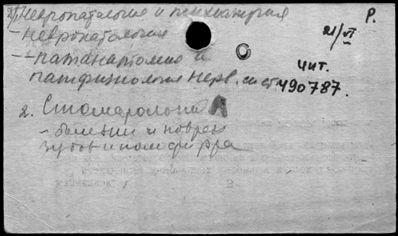 Невропатология и психиатрия
- Невропатология
- патанатомия и
патфизиология нерв. сист.
2. Стоматология
- болезни и повреж
зубов и
Р.
21/VI
чит.
490787.